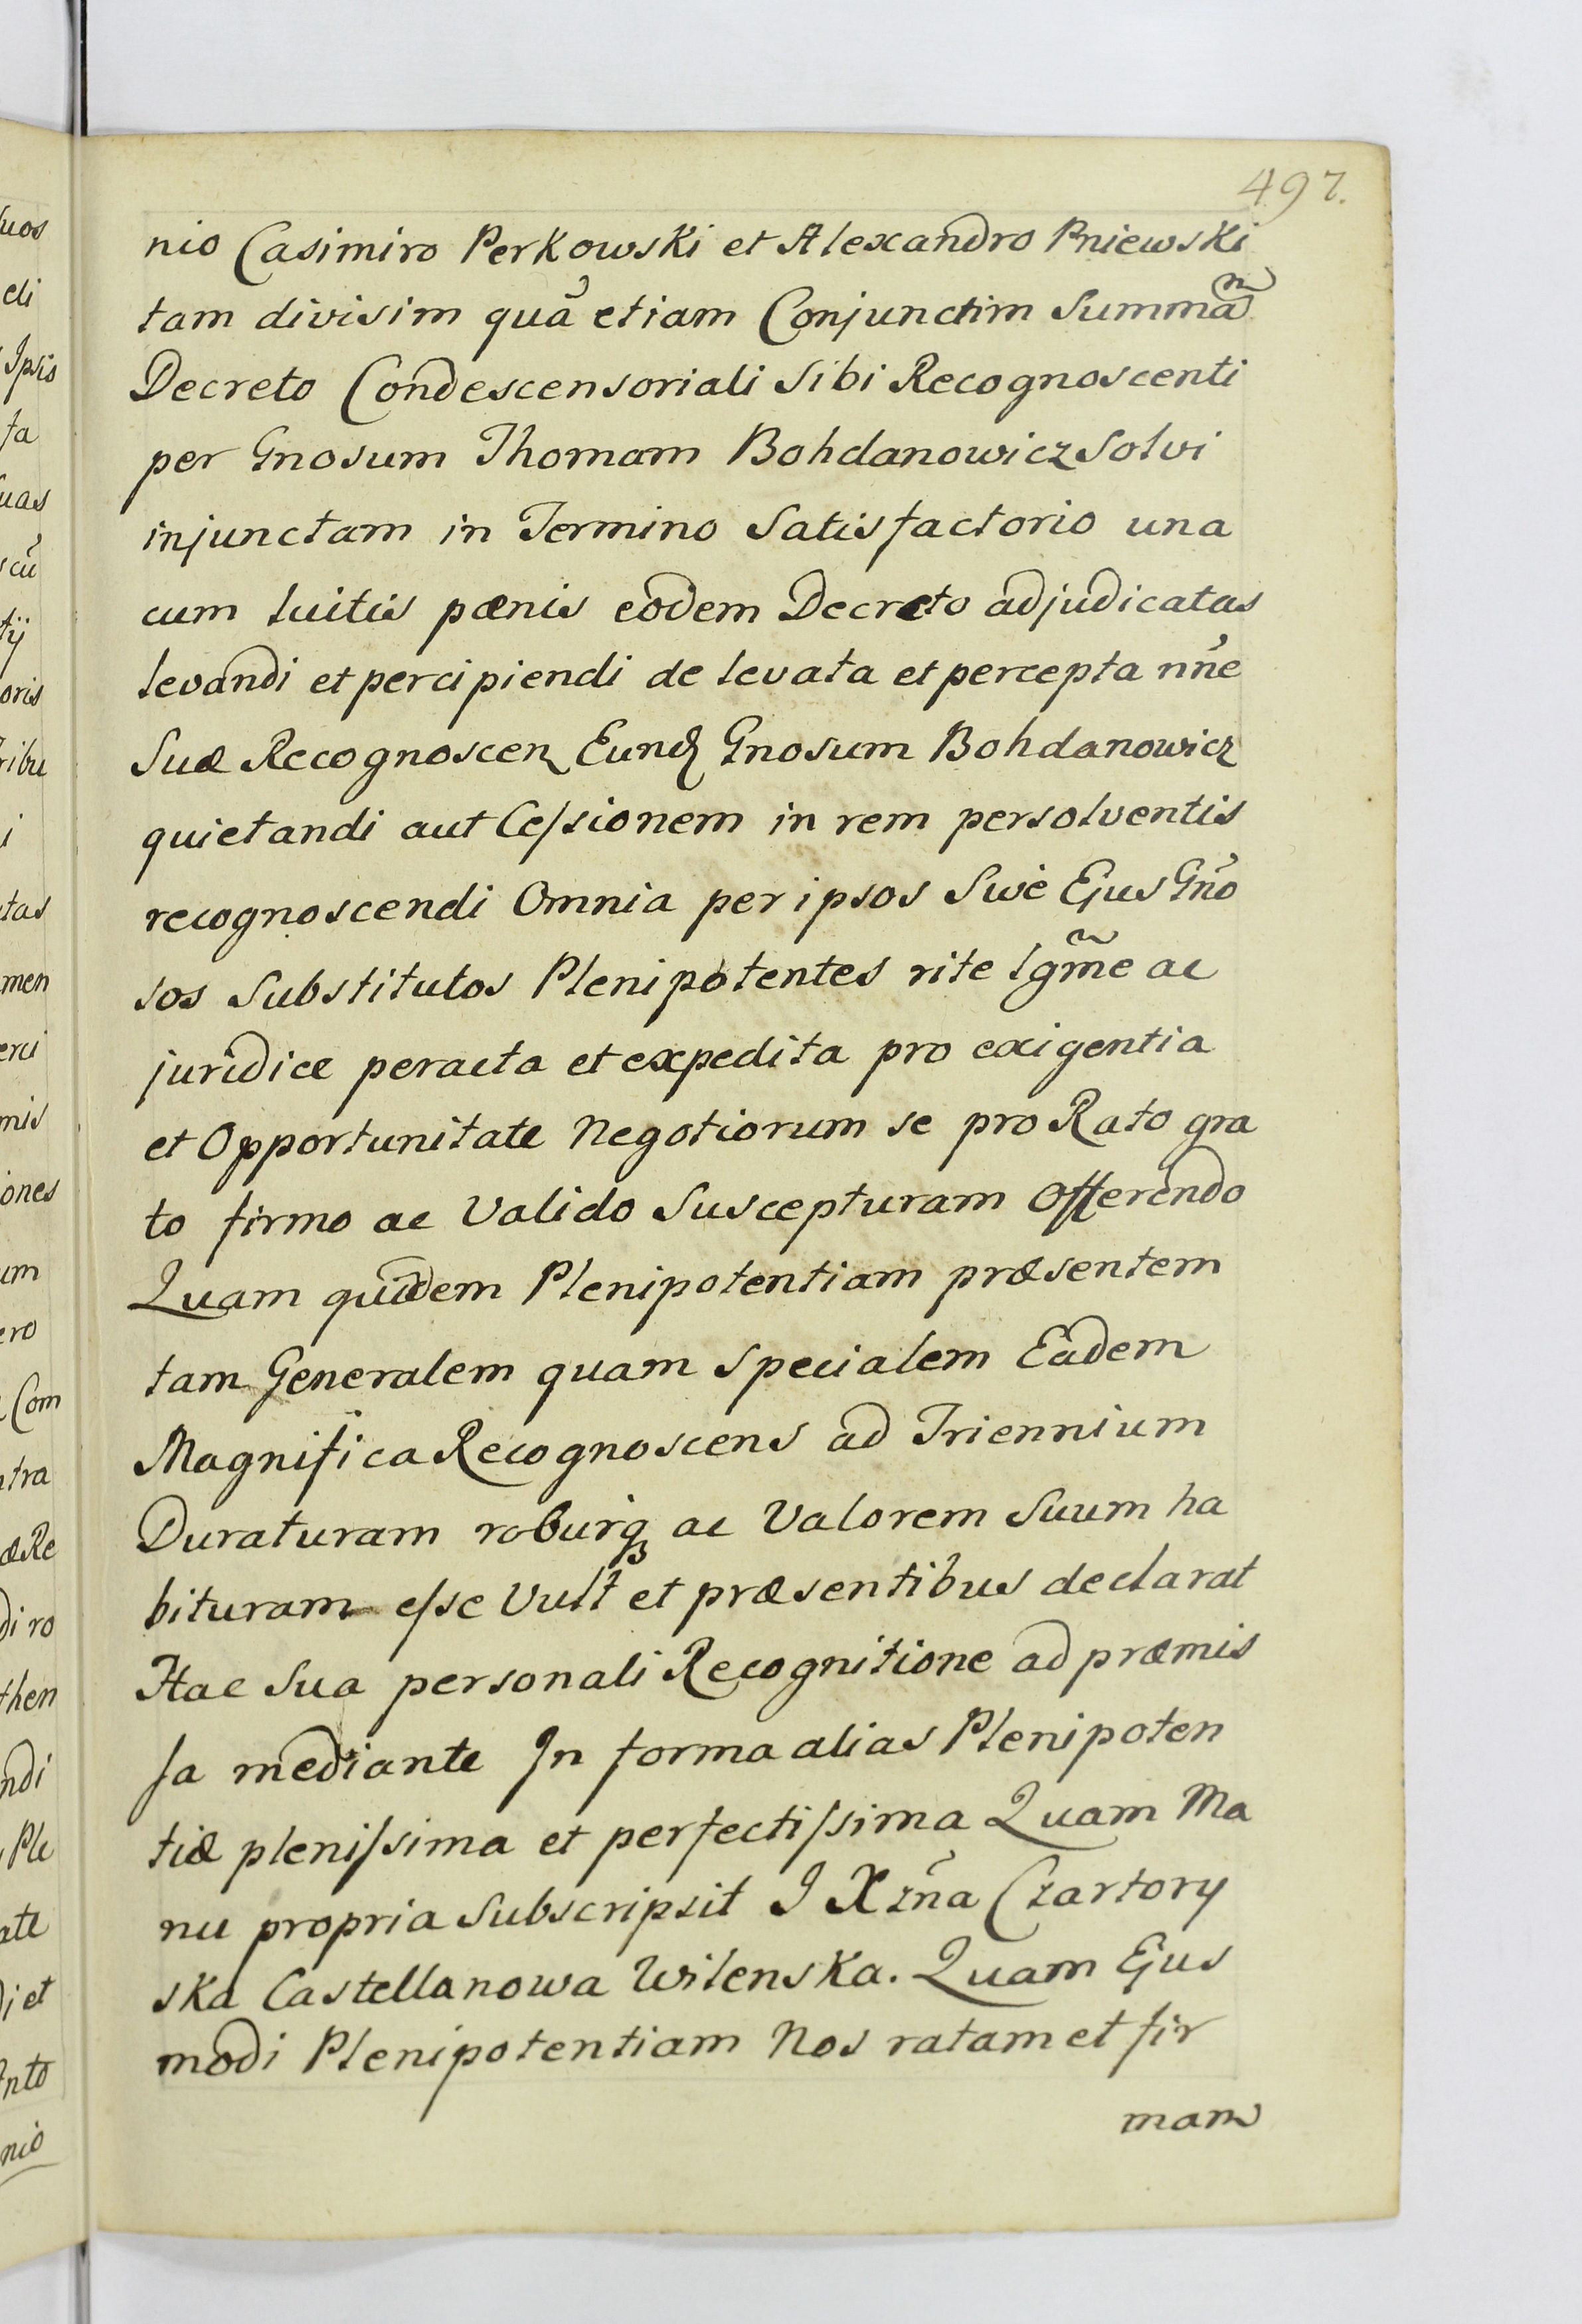 497.
nio Casimiro Perkowski et Alexandro Pniewski
tam divisim quã etiam Conjunctim Summam̃
Decreto Condescensoriali Sibi Recognoscenti
per Gnosum Thomam Bohdanowicz Solvi
injunctam in Termino Satisfactorio una
cum luitis pænis eodem Decreto adjudicatas
levandi et percipiendi de levata et percepta nñe
Suæ Recognoscen Eund Gnosum Bohdanowicz
quietandi aut Ceſsionem in rem persolventis
recognoscendi Omnia per ipsos Swè Ejus Gño
sos Substitutos Plenipotentes rite lgm̃e ac
juridice peracta et expedita pro exigentia
et Opportunitate Negotiorum se pro Rato gra
to firmo ac Valido Suscepturam Offerendo
Quam quidem Plenipotentiam præsentem
tam Generalem quam Specialem Eadem
Magnifica Recognoscens ad Triennium
Duraturam roburq̃ ac Valorem Suum ha
bituram eſse Vult et præsentibus declarat
Hac Sua personali Recognitione ad præmis
ſa mediante In forma alias Plenipoten
tiæ pleniſsima et perfectiſsima Quam Ma
nu propria Subscripsit J Xzña Czartory
ska Castellanowa Wilenska. Quam Ejus
modi Plenipotentiam Nos ratam et fir
mam
uos
eli
Ipsis
ta
uas
cũ
tij
oris
ribu
i
tas
men
erci
mis
iones
um
ero
Com
ntra
æ Re
di ro
then
ndi
Ple
ate
di et
nto
nio